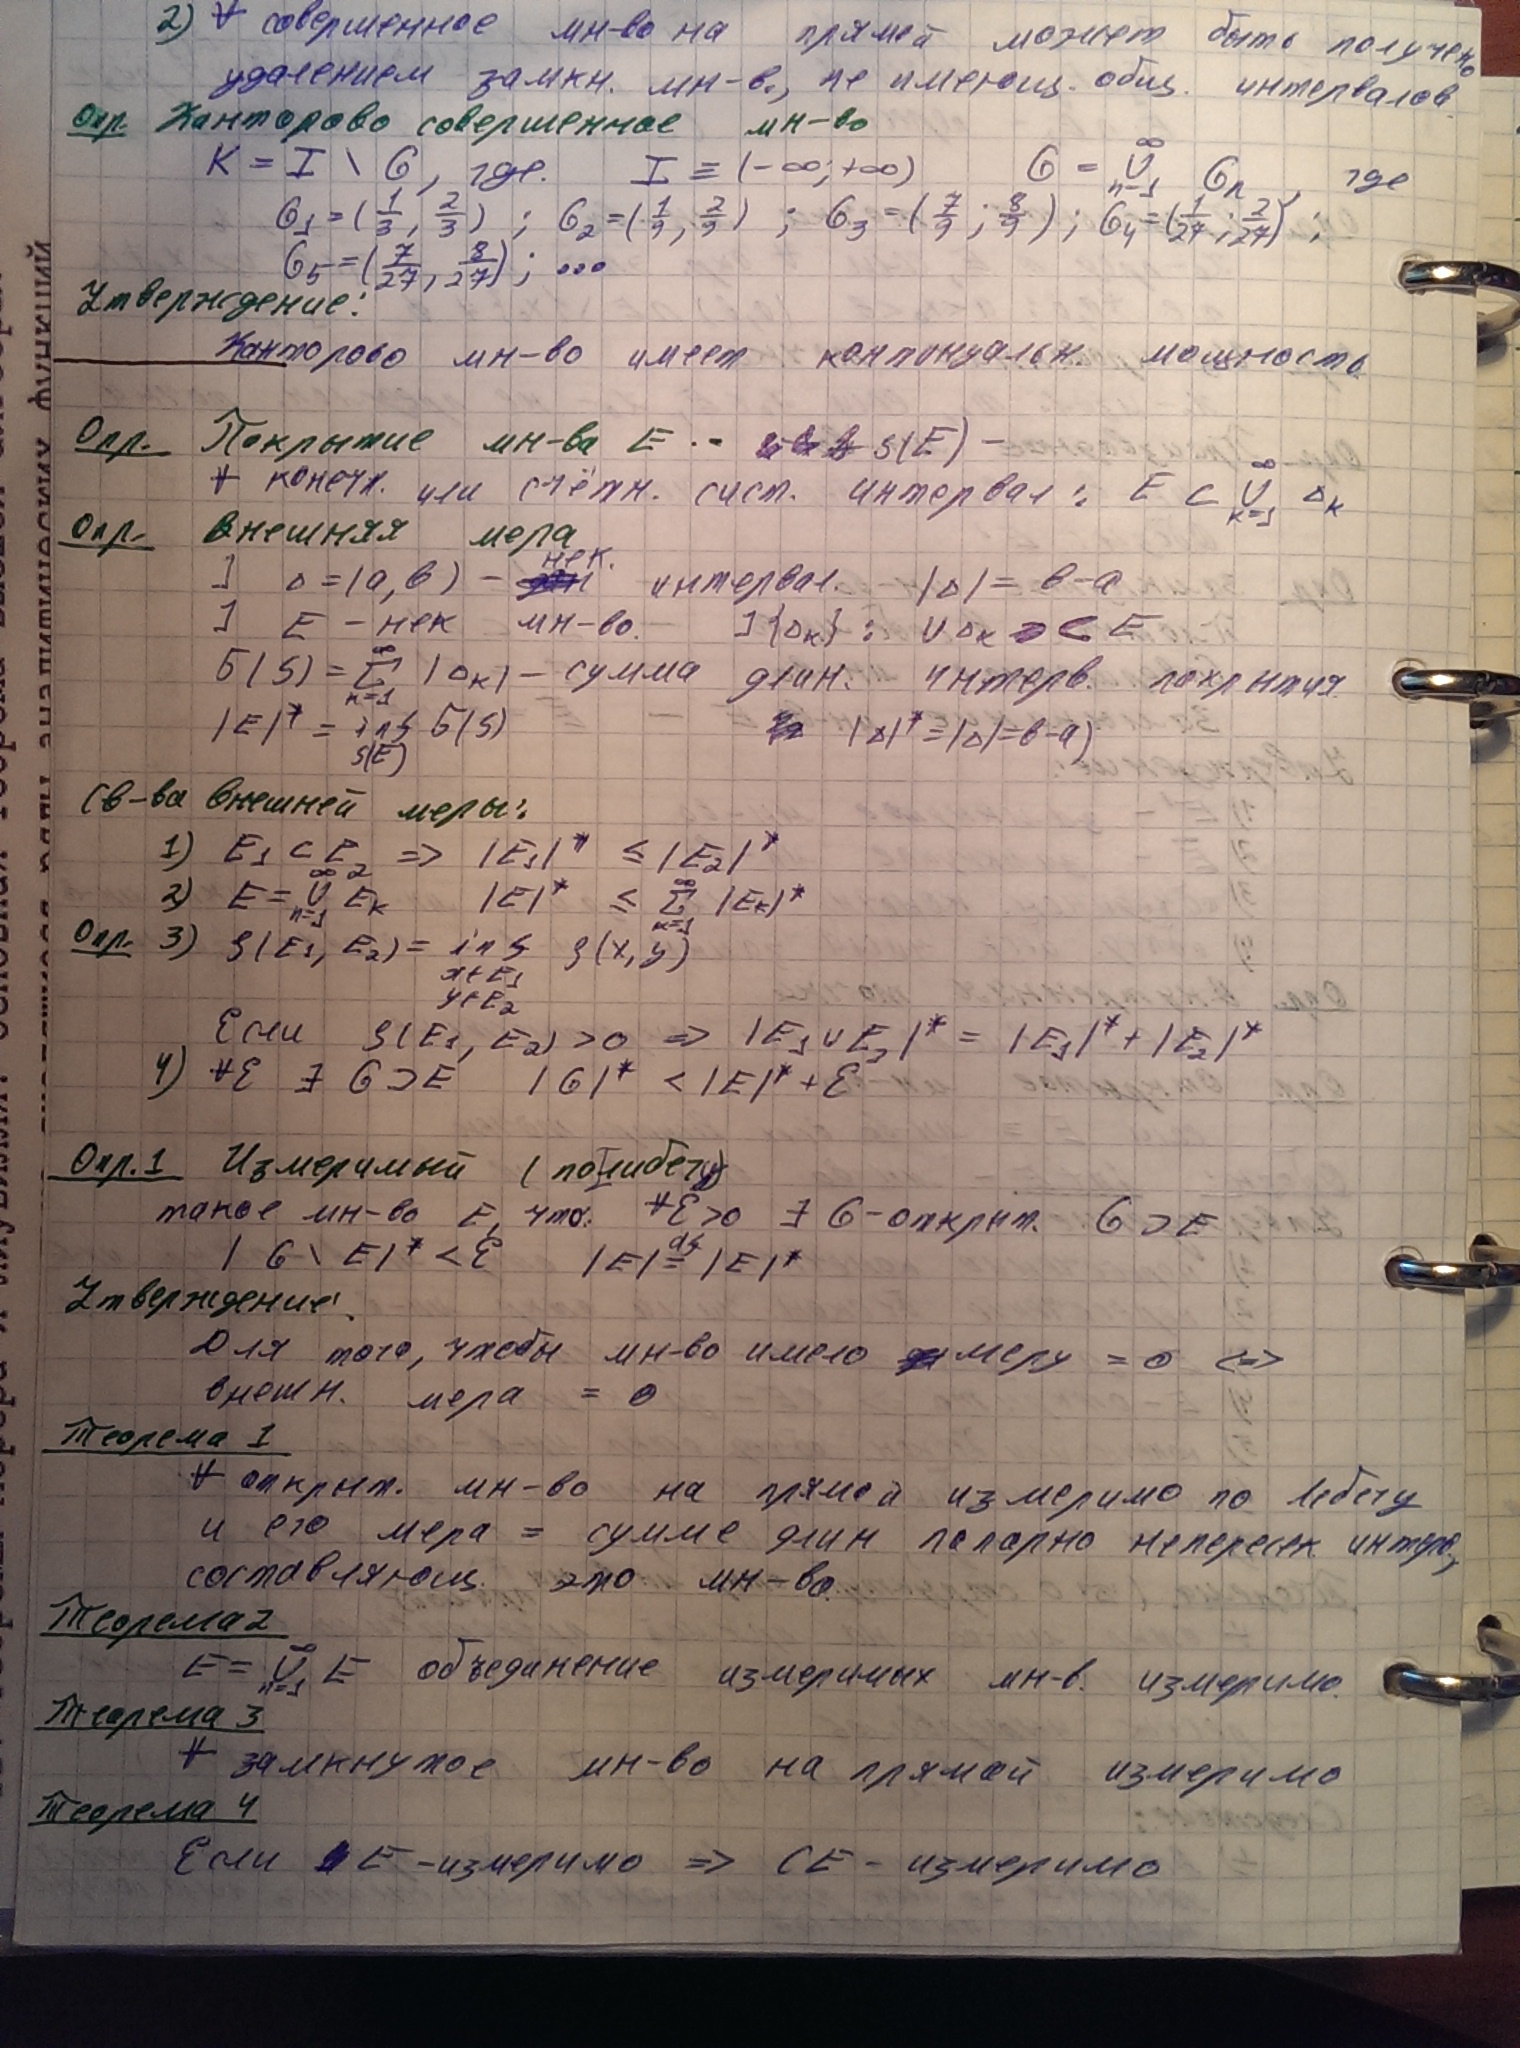 2) ∀ совершенное мн-во на прямой может быть получено
удалением замкн. мн-в., не имеющ. общ. интервалов.
Опр. Канторово совершенное мн-во
K = I \ G, где. I ≡ (-∞; +∞) G = ∞ ∪ n=1 Gn, где
G1 = (1/3, 2/3) ; G2 = (1/9, 2/9) ; G3 = (7/9 ; 8/9) ; G4 = (1/27 ; 2/27) ;
G5 = (7/27, 8/27) ; ...
Утверждение:
Канторово мн-во имеет континуальн. мощность.
Опр. Покрытие мн-ва E - S(E) -
∀ конечн. или счётн. сист. интервал: E ⊂ ∞ ∪ k=1 Δk
Опр. Внешняя мера
] Δ = (a, b) - нек. интервал. |Δ| = b-a
] E - нек мн-во. ] {Δk} : ∪ Δk ⊂ E
σ(S) = ∞ Σ k=1 |Δk| - сумма длин. интерв. покрытия
|E|* = inf S(E) σ(S) |Δ|* = |Δ| = b-a)
Св-ва внешней меры:
1) E1 ⊂ E2 => |E1|* ≤ |E2|*
2) E = ∞ ∪ n=1 Ek |E|* ≤ ∞ Σ k=1 |Ek|*
Опр. 3) ρ(E1, E2) = inf x∈E1 y∈E2 ρ(x, y)
Если ρ(E1, E2) > 0 => |E1 ∪ E2|* = |E1|* + |E2|*
4) ∀ε ∃ G ⊃ E |G|* < |E|* + ε
Опр. 1 Измеримый (по Лебегу)
такое мн-во E, что: ∀ε>0 ∃ G - открыт. G ⊃ E
|G \ E|* < ε |E| df = |E|*
Утверждение:
Для того, чтобы мн-во имело меру = 0 <=>
внешн. мера = 0
Теорема 1
∀ открыт. мн-во на прямой измеримо по Лебегу
и его мера = сумме длин попарно непересек интерв,
составляющ. это мн-во.
Теорема 2
E = ∞ ∪ n=1 E объединение измеримых мн-в. измеримо.
Теорема 3
∀ замкнутое мн-во на прямой измеримо
Теорема 4
Если E - измеримо => CE - измеримо